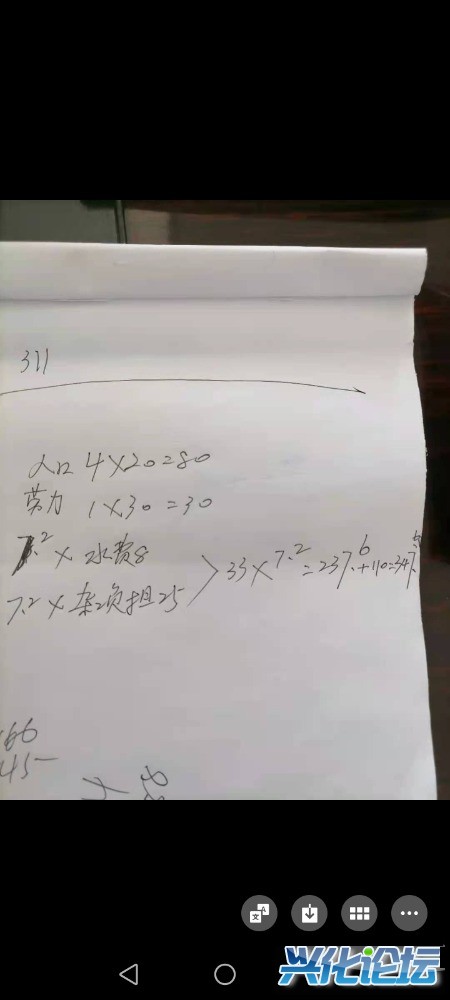 311
人口 4×20=80
劳力 1×30=30
7.2× 水费8
7.2×杂负担25
33×7.2=237.6+110=347.
66
45
兴化论坛